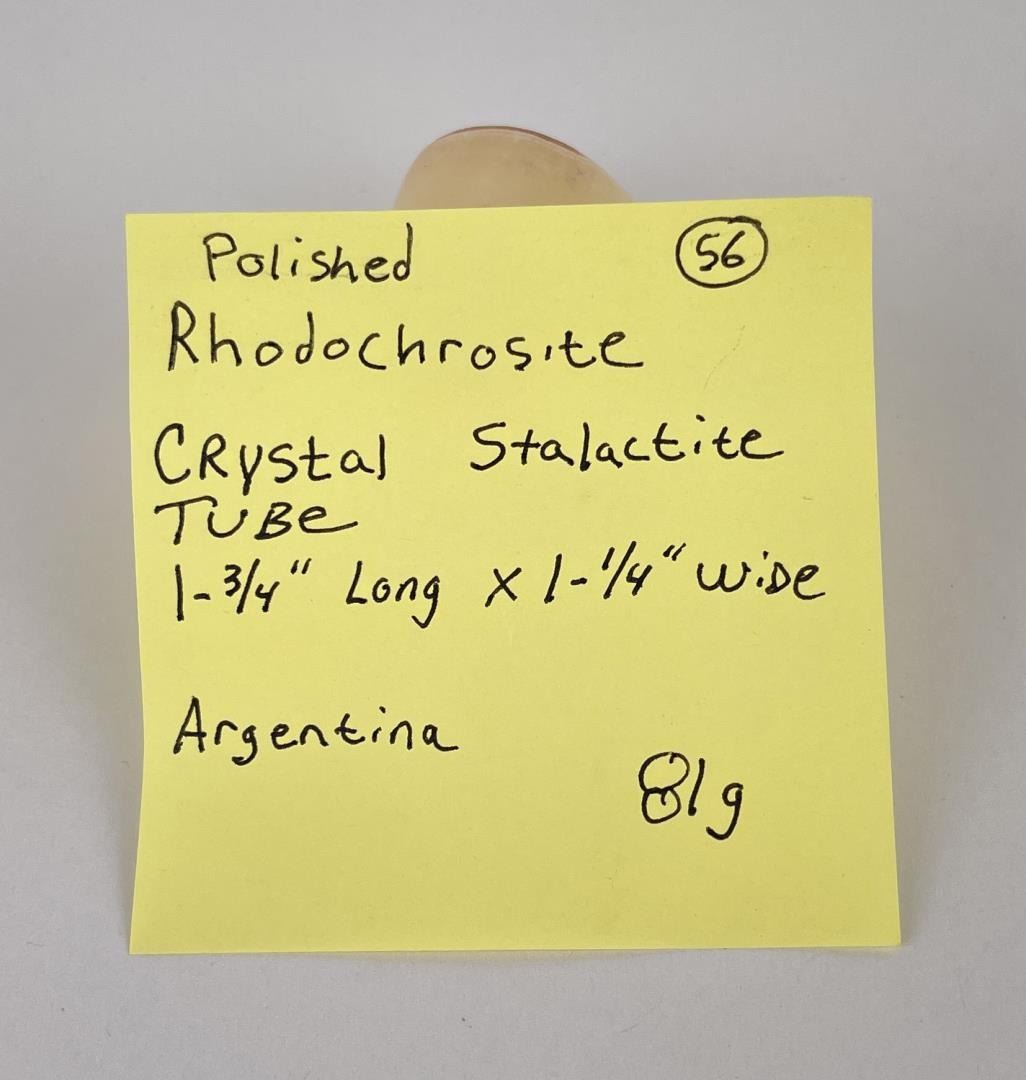 Polished 56
Rhodochrosite
Crystal Stalactite
TUBe
1-3/4" Long x 1-1/4" wide
Argentina
81g